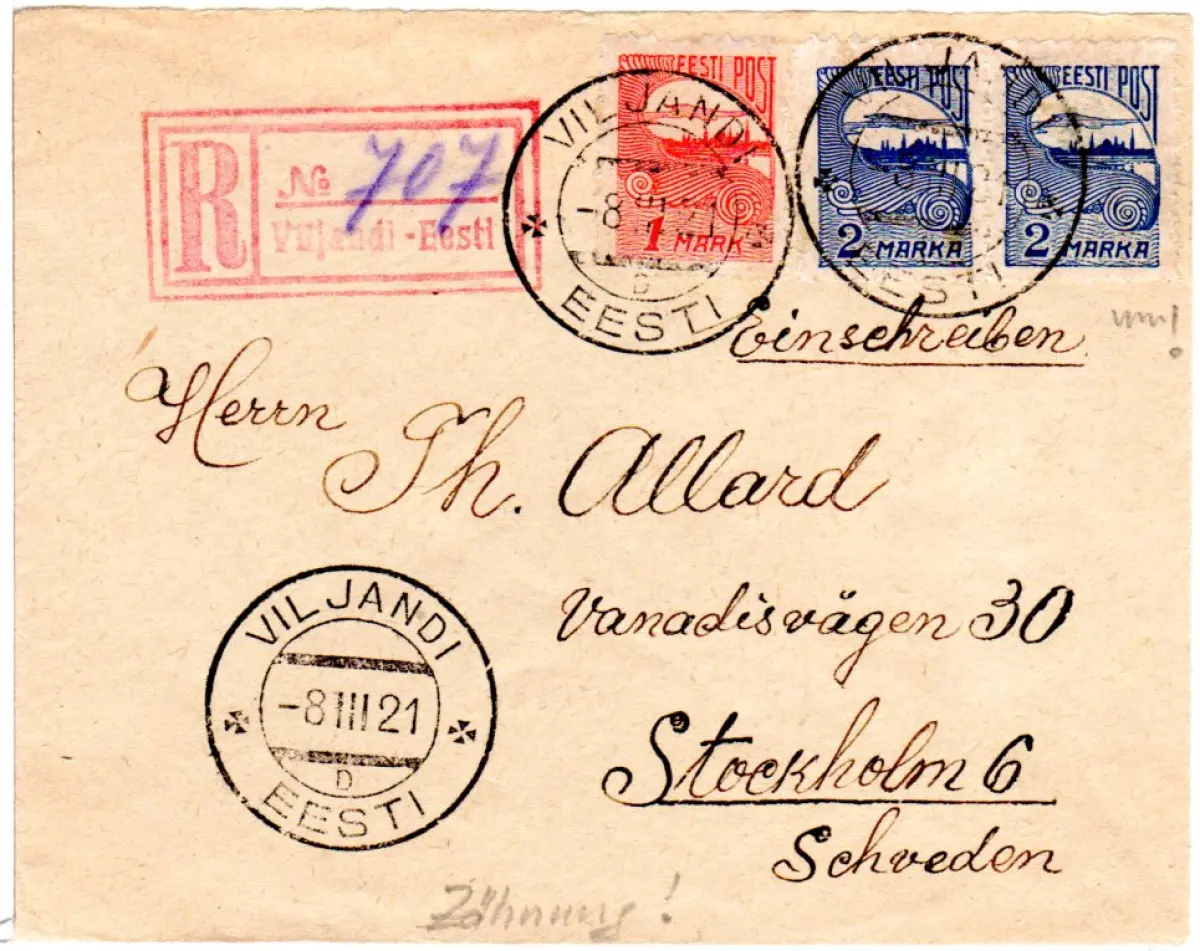 EESTI POST
1 MARK
EESTI POST
2 MARKA
EESTI POST
2 MARKA
VILJANDI
-8 III 21
D
EESTI
VILJANDI
EESTI
R
№ 707
Viljandi-Eesti
Einschreiben
Herrn
Th. Allard
Vanadisvägen 30
Stockholm 6
Schveden
VILJANDI
-8 III 21
D
EESTI
Zähnung!